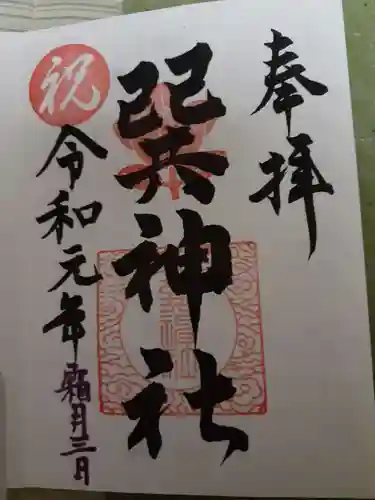 奉拝
巽神社
祝
令和元年
霜月三日